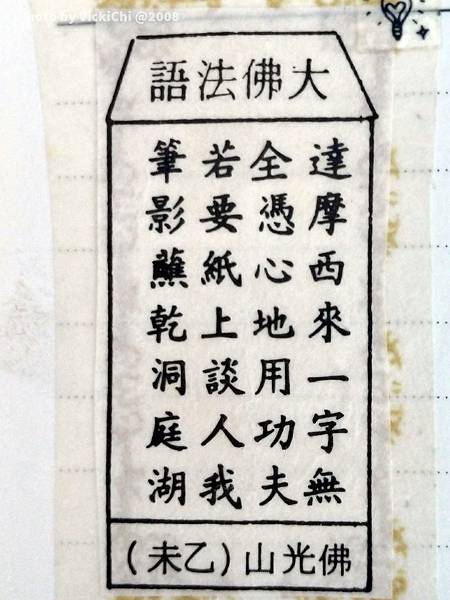 Photo by VickiChi @2008
大佛法語
達摩西來一字無
全憑心地用功夫
若要紙上談人我
筆影蘸乾洞庭湖
佛光山(乙未)